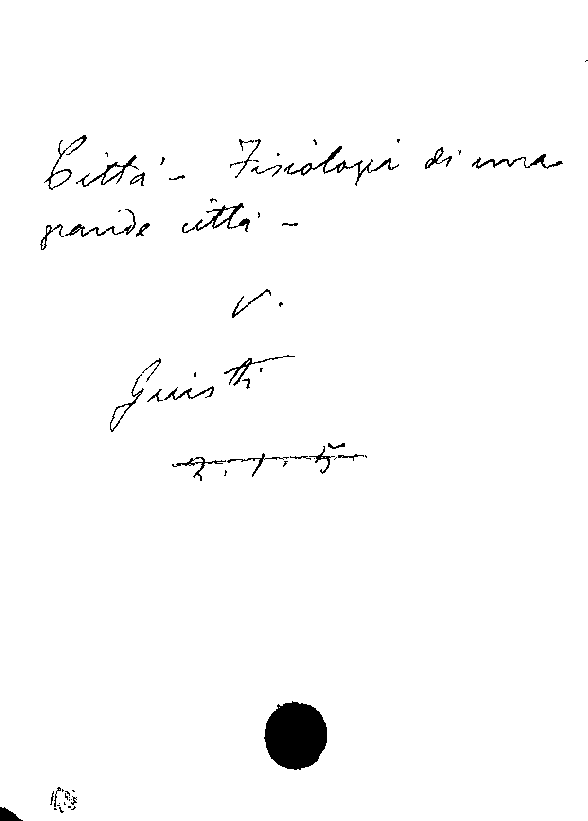 Città - Fisiologia di una
grande città -
V.
Giusti
2.1.5.